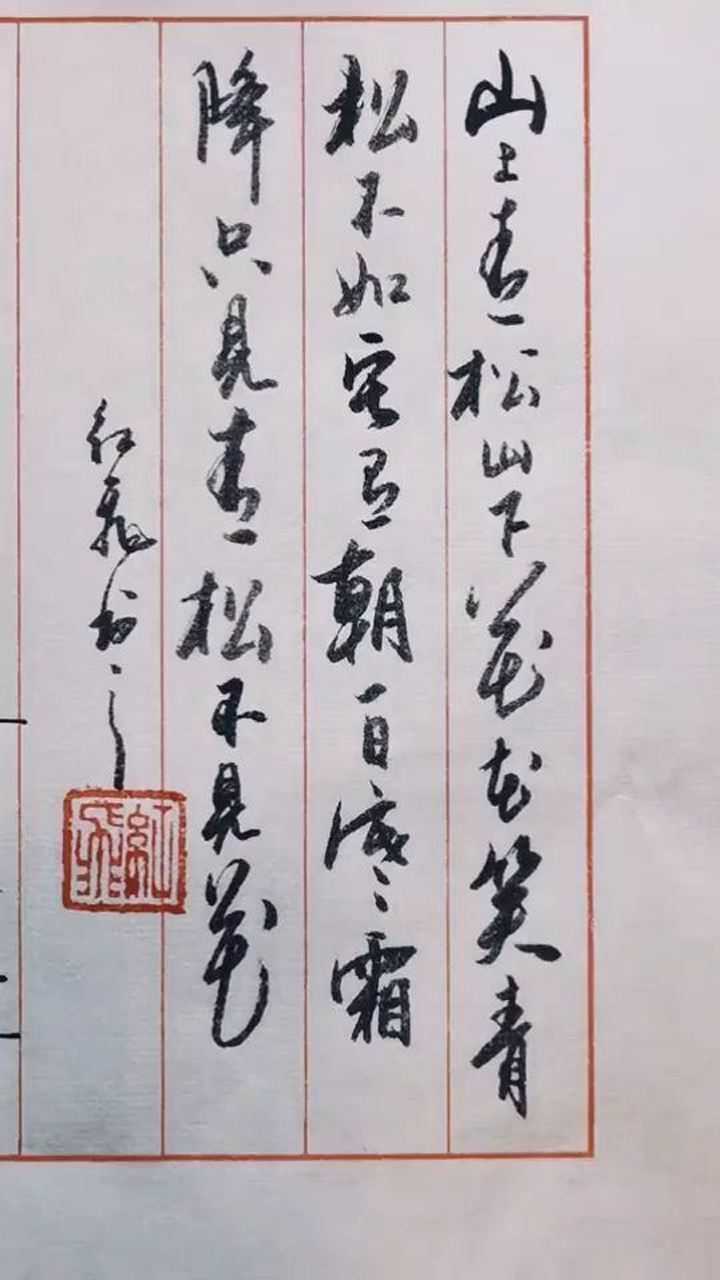 山上青松山下花花笑青
松不如它有朝一日凛凛霜
降只见青松不见花
红飞书